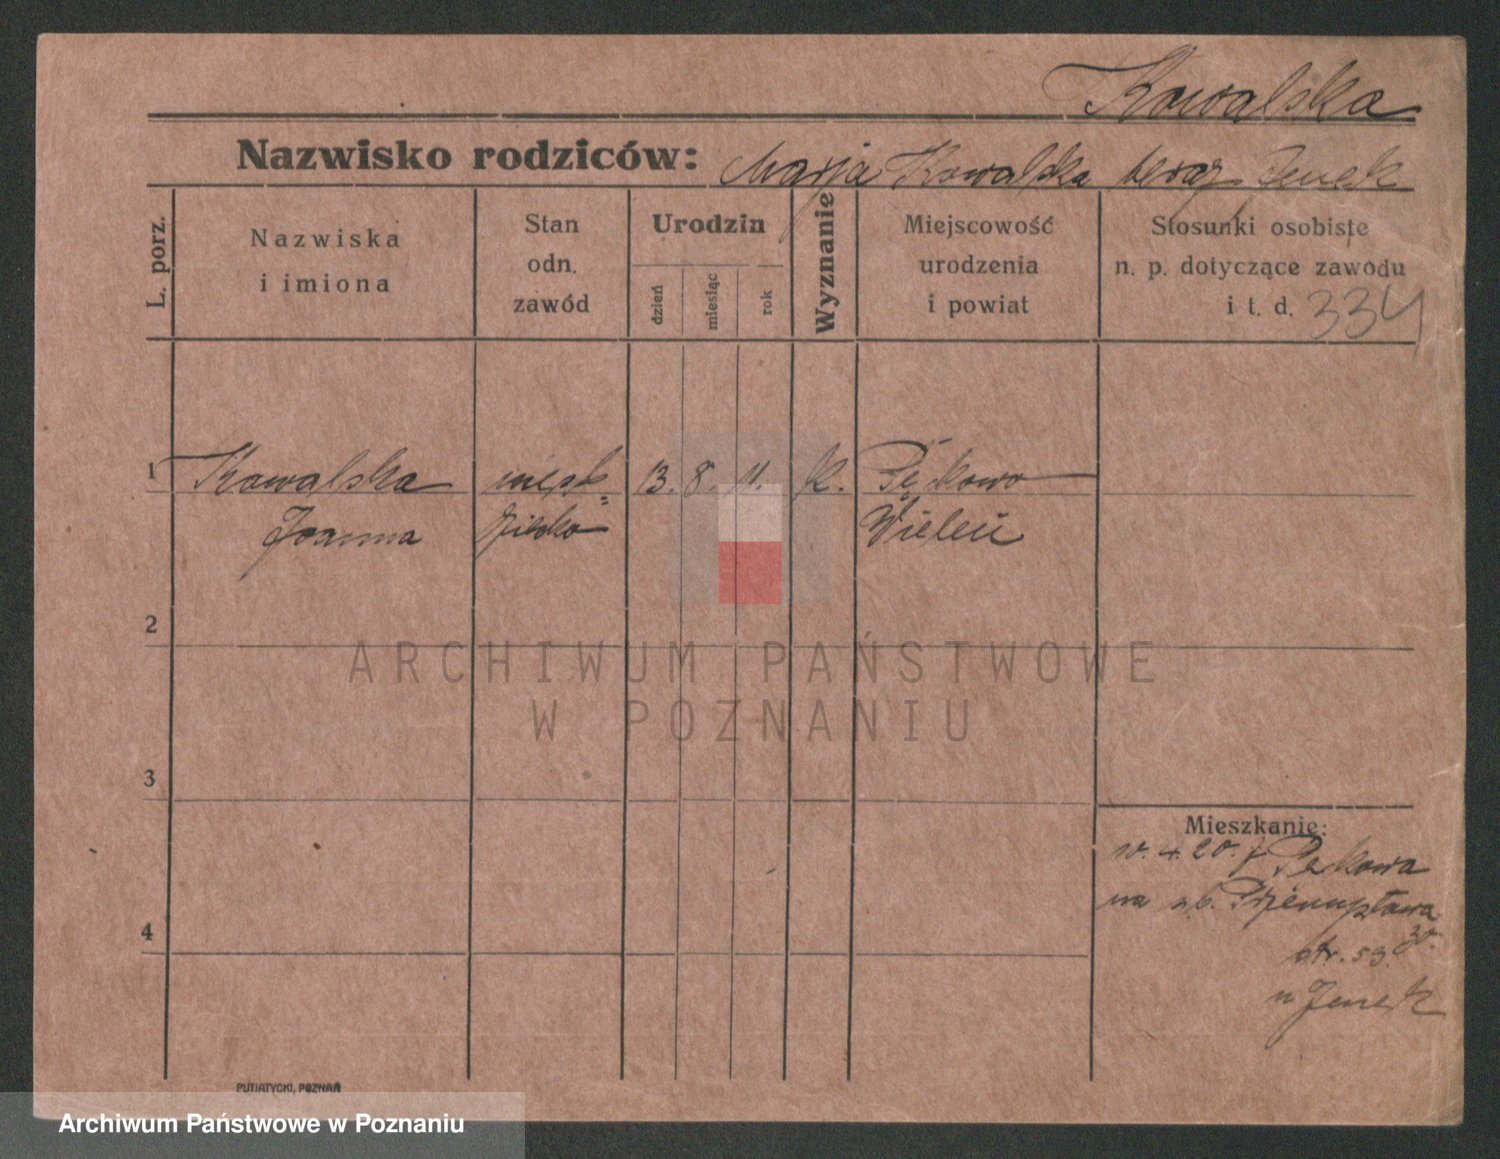 Kowalska
Nazwisko rodziców: Marja Kowalska teraz Jenek
L. porz.
Nazwiska
i imiona
Stan
odn.
zawód
Urodzin
dzień
miesiąc
rok
Wyznanie
Miejscowość
urodzenia
i powiat
Stosunki osobiste
n. p. dotyczące zawodu
i t. d.
334
1 Kowalska 13. 8. 11. k. Pęckowo
Joanna dziecko Wieleń
2
3
4
ARCHIWUM PAŃSTWOWE
W POZNANIU
Mieszkanie:
10. 4. 20. z Pęckowa
na Przemysłowa
30.
str. 53.
u Jenek
PUTIATYCKI, POZNAŃ
Archiwum Państwowe w Poznaniu